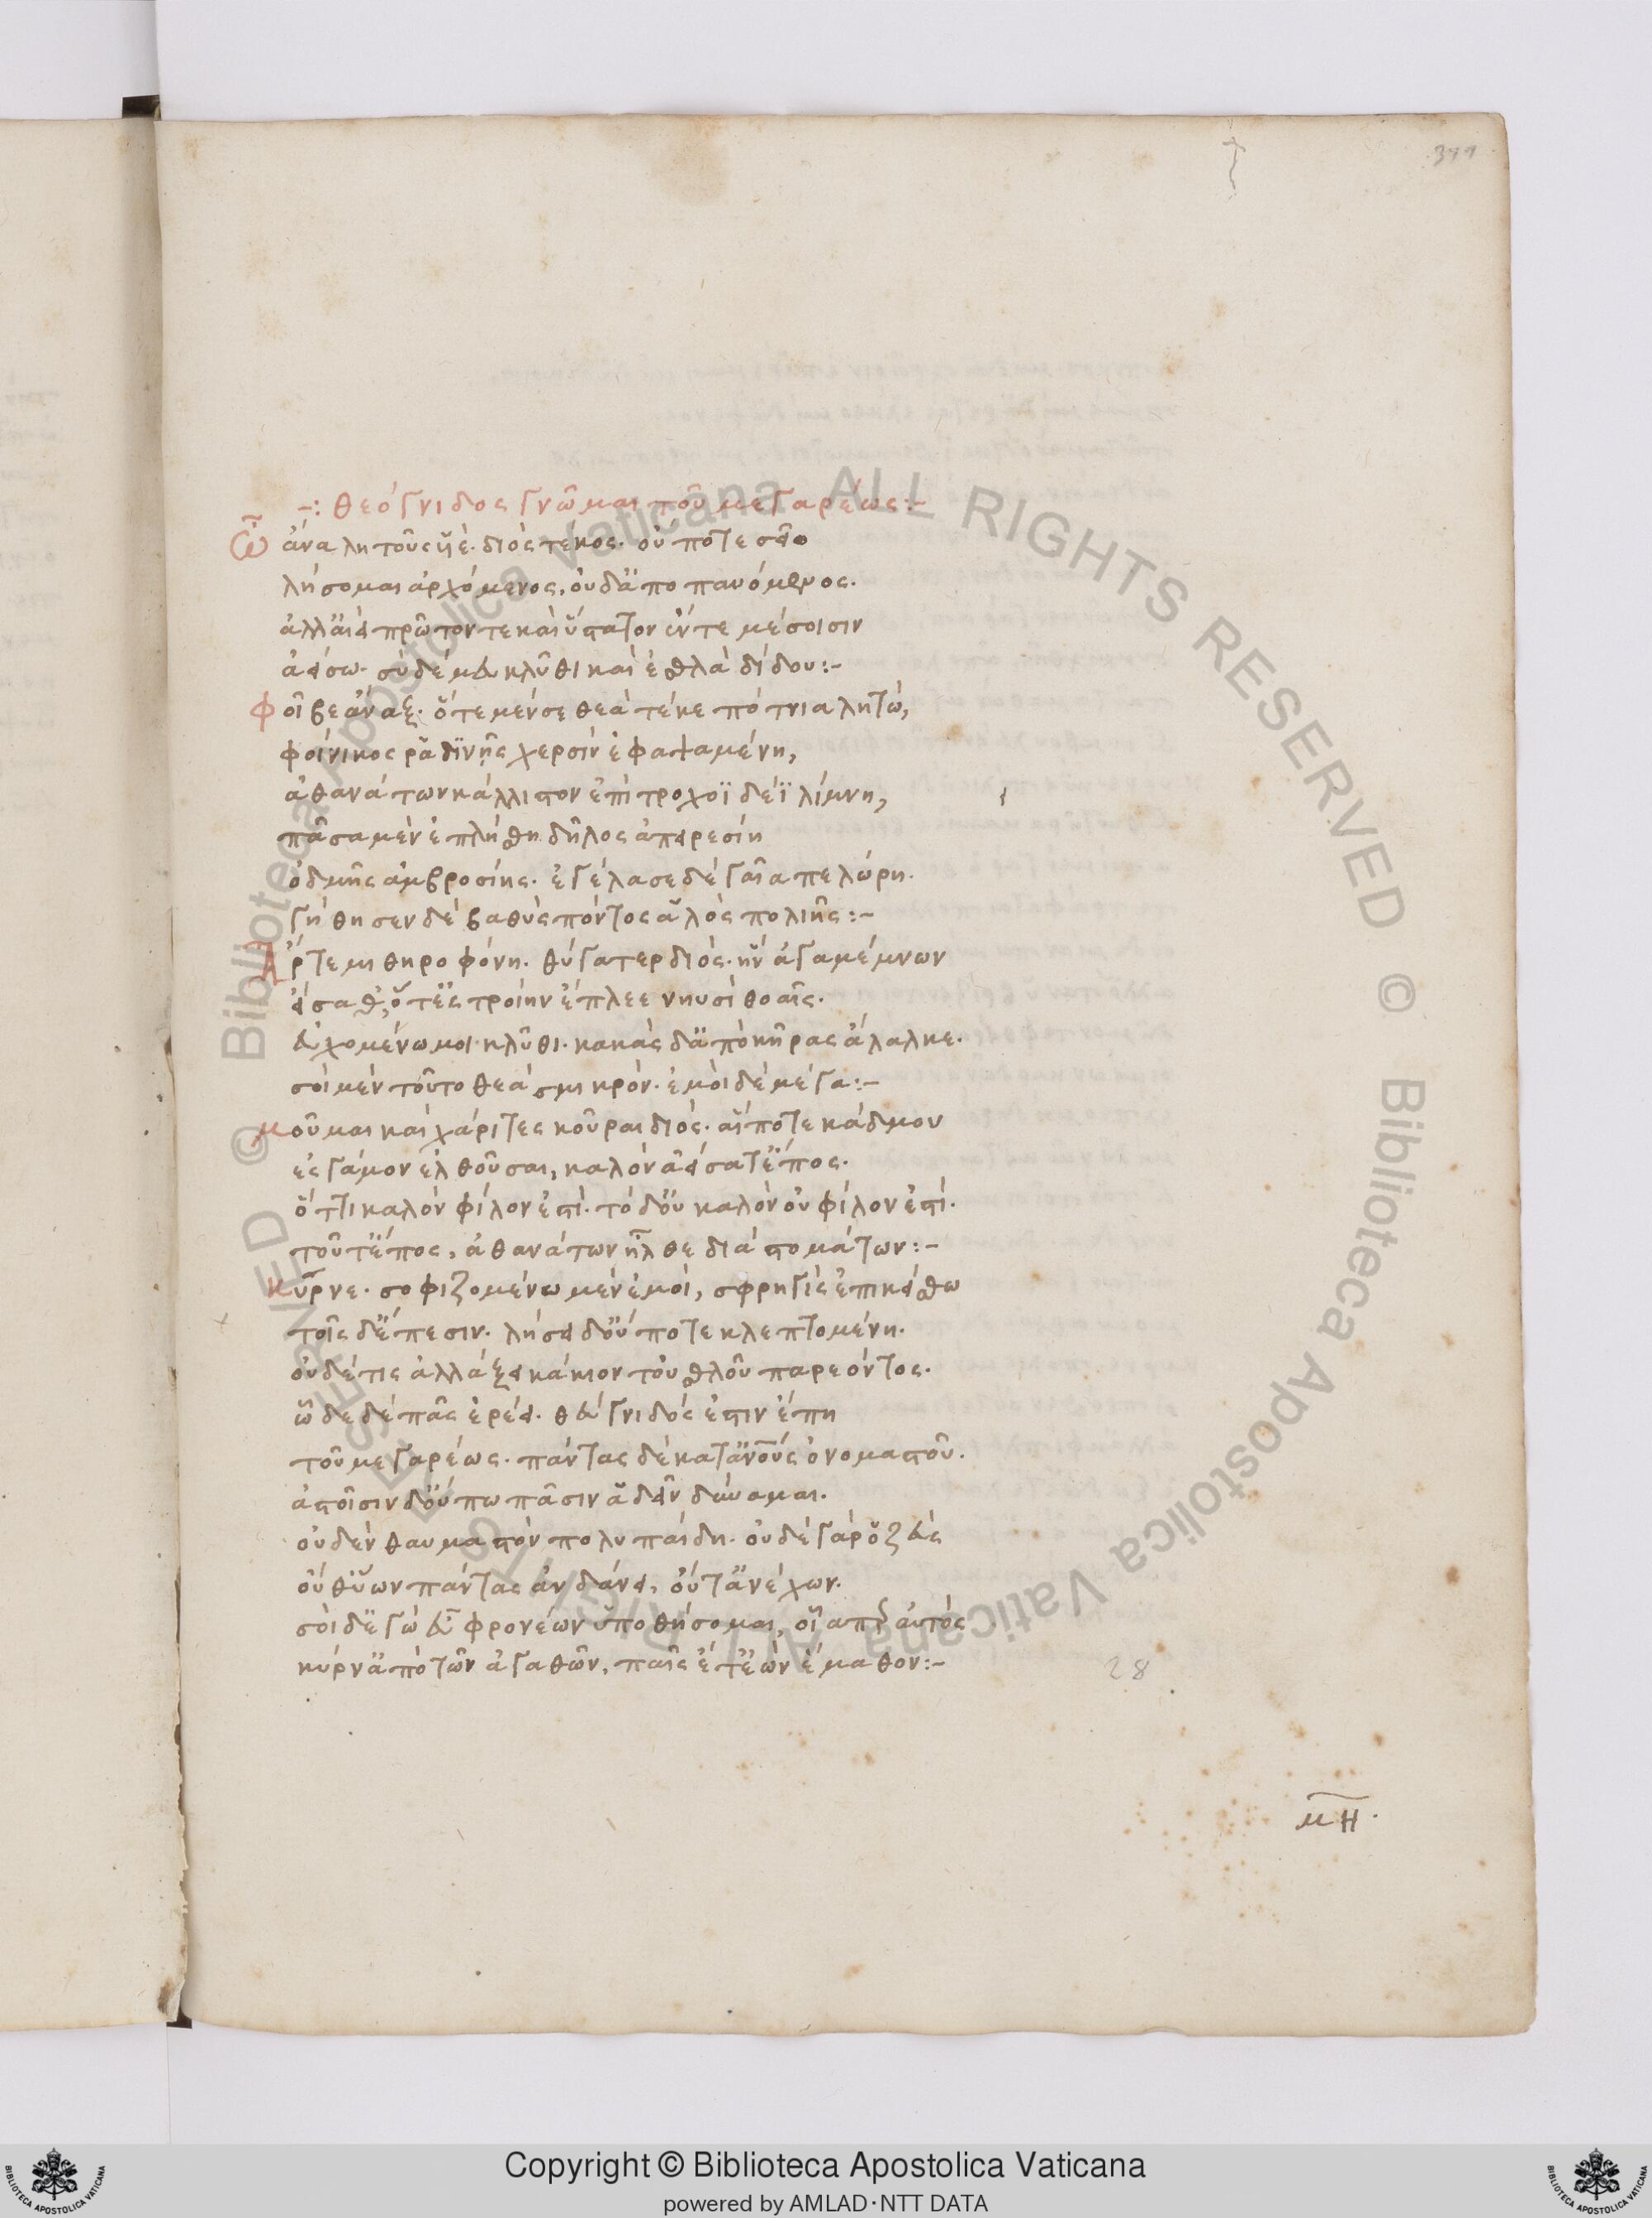 311
-: θεόγνιδος γνῶμαι τοῦ μεγαρέως:-
Ὦ ἄνα λητοῦς υἱὲ. διὸς τέκος. οὔποτε σεῖο
λήσομαι ἀρχόμενος, οὐδ' ἀποπαυόμενος.
ἀλλ' αἰεὶ πρῶτόν τε καὶ ὕστατον ἔν τε μέσοισιν
ἀείσω. σὺ δέ μευ κλῦθι καὶ ἐσθλὰ δίδου:-
Φοῖβε ἄναξ. ὅτε μέν σε θεὰ τέκε πότνια λητώ,
φοίνικος ῥαδινῆς χερσὶν ἐφαψαμένη,
ἀθανάτων κάλλιστον ἐπὶ τροχοϊδέϊ λίμνη,
πᾶσα μὲν ἐπλήσθη δῆλος ἀπειρεσίη
ὀδμῆς ἀμβροσίης. ἐγέλασε δὲ γαῖα πελώρη.
γήθησεν δὲ βαθὺς πόντος ἁλὸς πολιῆς:-
Ἄρτεμι θηροφόνη. θύγατερ διός. ἣν ἀγαμέμνων
εἵσαθ', ὅτ' ἐς τροίην ἔπλεε νηυσὶ θοαῖς.
εὐχομένω μοι κλῦθι. κακὰς δ' ἀπὸ κῆρας ἄλαλκε.
σοὶ μὲν τοῦτο θεὰ σμικρόν. ἐμοὶ δὲ μέγα:-
μοῦσαι καὶ χάριτες κοῦραι διός. αἵ ποτε κάδμου
ἐς γάμον ἐλθοῦσαι, καλὸν ἀείσατ' ἔπος.
ὅττι καλὸν φίλον ἐστί. τὸ δ' οὐ καλὸν οὐ φίλον ἐστί.
τοῦτ' ἔπος, ἀθανάτων ἦλθε διὰ στομάτων:-
κύρνε. σοφιζομένω μὲν ἐμοί, σφρηγὶς ἐπικείσθω
τοῖς δ' ἔπεσιν. λήσει δ' οὔποτε κλεπτομένη.
οὐδέ τις ἀλλάξει κάκιον τοὐσθλοῦ παρεόντος.
ὧδε δὲ πᾶς ἐρέει. θεύγνιδός ἐστιν ἔπη
τοῦ μεγαρέως. πάντας δὲ κατ' ἀνους ὀνομαστοῦ.
ἀστοῖσιν δ' οὔπω πᾶσιν ἁδεῖν δύναμαι.
οὐδὲν θαυμαστὸν πολυπαίδη. οὐδὲ γὰρ ὁ ζεὺς
οὔθ' ὕων πάντας ἁνδάνει, οὔτ' ἀνέχων.
σοὶ δ' ἐγὼ εὖ φρονέων ὑποθήσομαι, οἷά περ αὐτὸς
κύρν' ἀπὸ τῶν ἀγαθῶν, παῖς ἔτ' ἐὼν ἔμαθον:-
28
μη.
© Biblioteca Apostolica Vaticana ALL RIGHTS RESERVED © Biblioteca Apostolica Vaticana ALL RIGHTS RESERVED
Copyright © Biblioteca Apostolica Vaticana
powered by AMLAD・NTT DATA
BIBLIOTECA APOSTOLICA VATICANA
BIBLIOTECA APOSTOLICA VATICANA